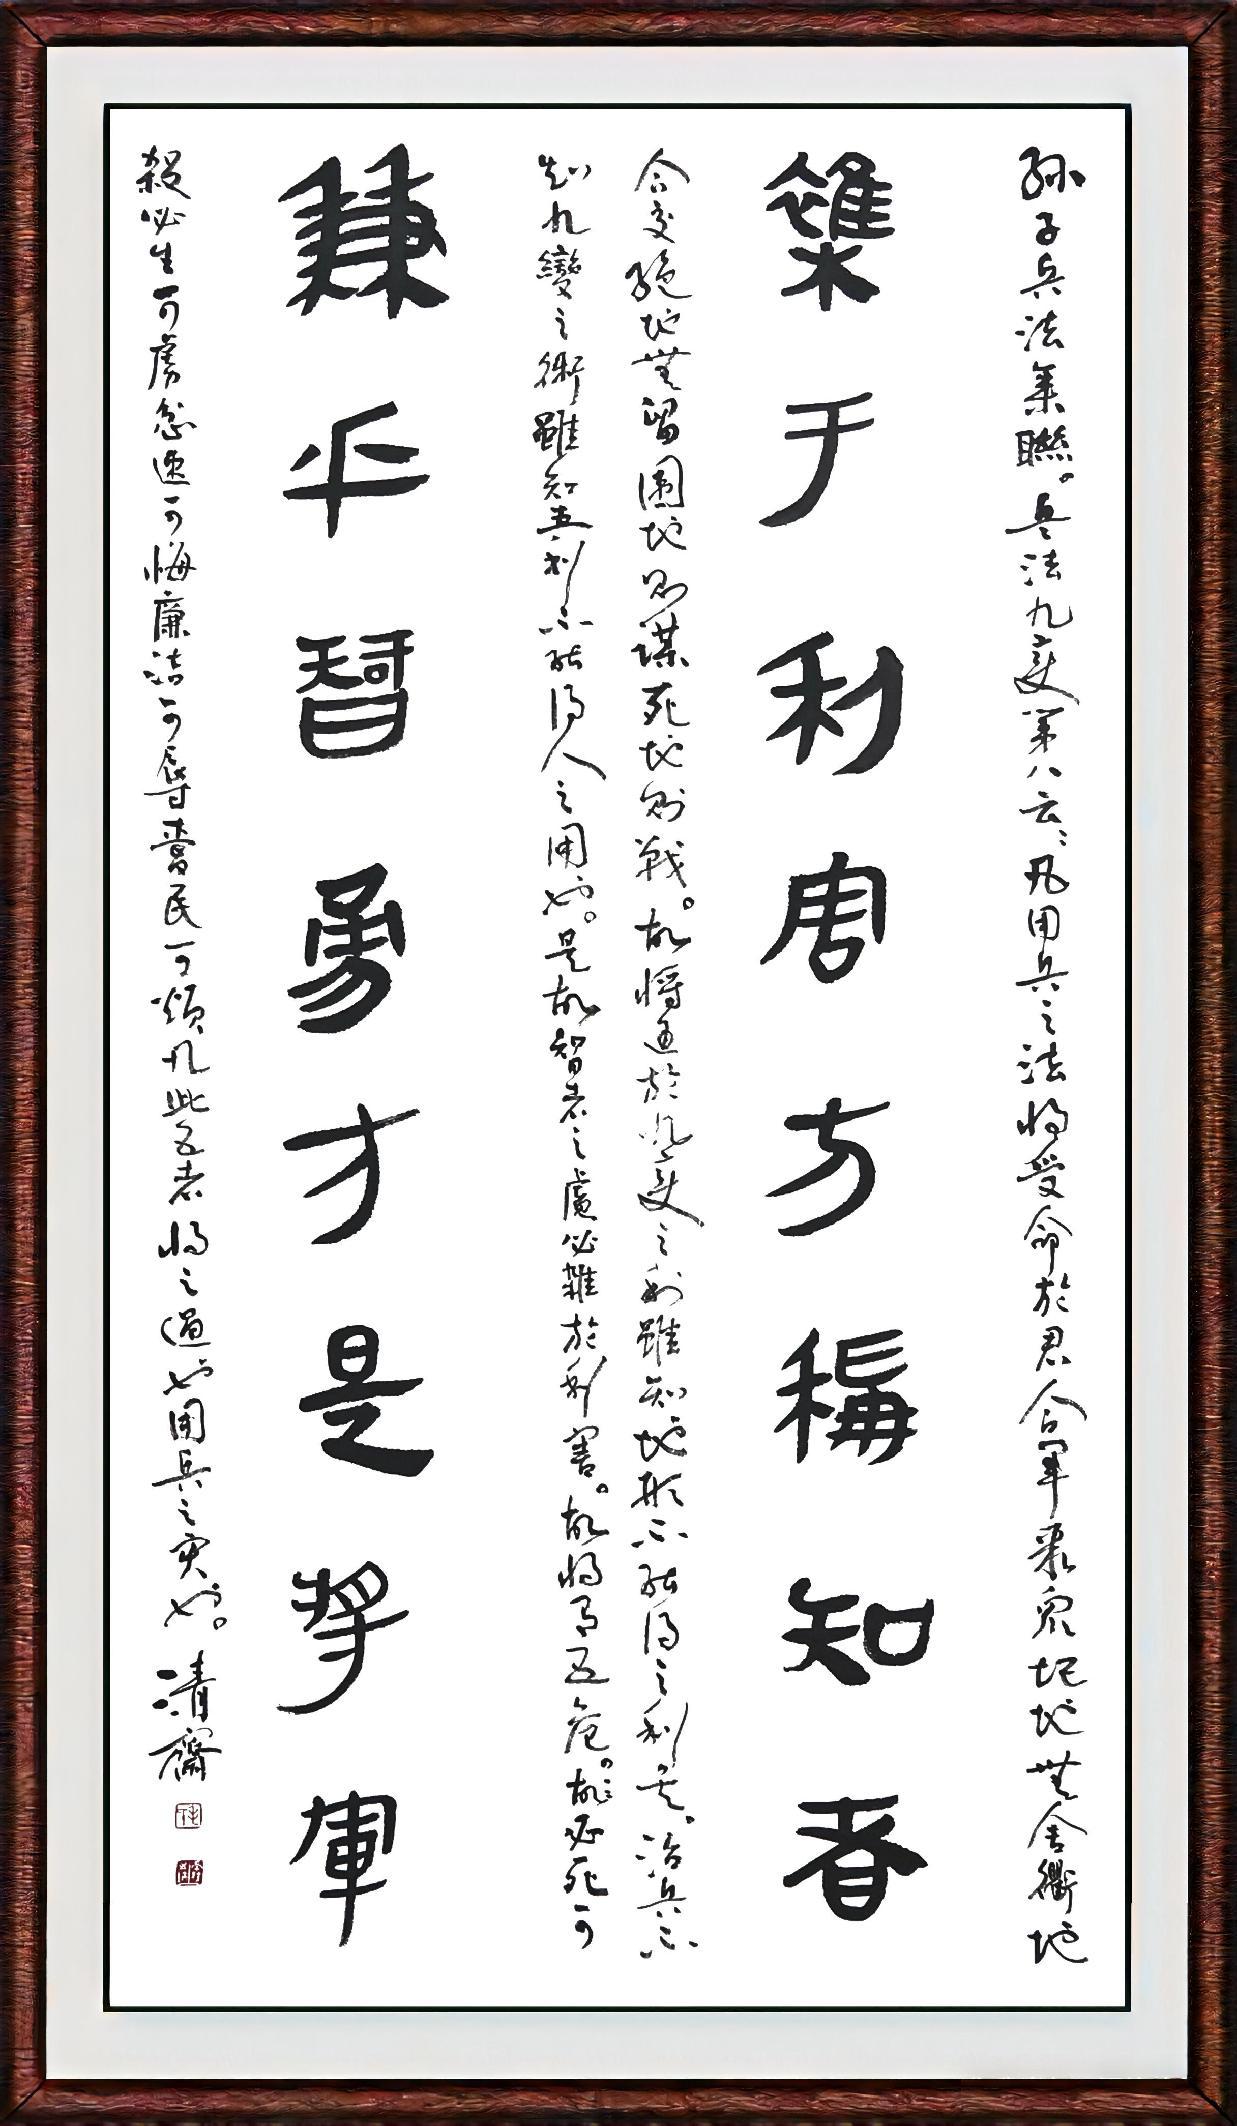 孫子兵法集聯。兵法九变第八云：凡用兵之法将受命於君合軍聚眾圮地無舍衢地
雜于利周方稱知者
合交絕地無留圍地則謀死地則戰。故將通於九变之利雖知地形不能得之利矣。治兵不
知九變之術雖知五利不能得人之用也。是故智者之慮必雜於利害。故将有五危。故必死可
兼乎智勇才是将軍
殺必生可虜忿速可悔廉洁可辱愛民可煩凡此五者将之過也用兵之灾也。清齋